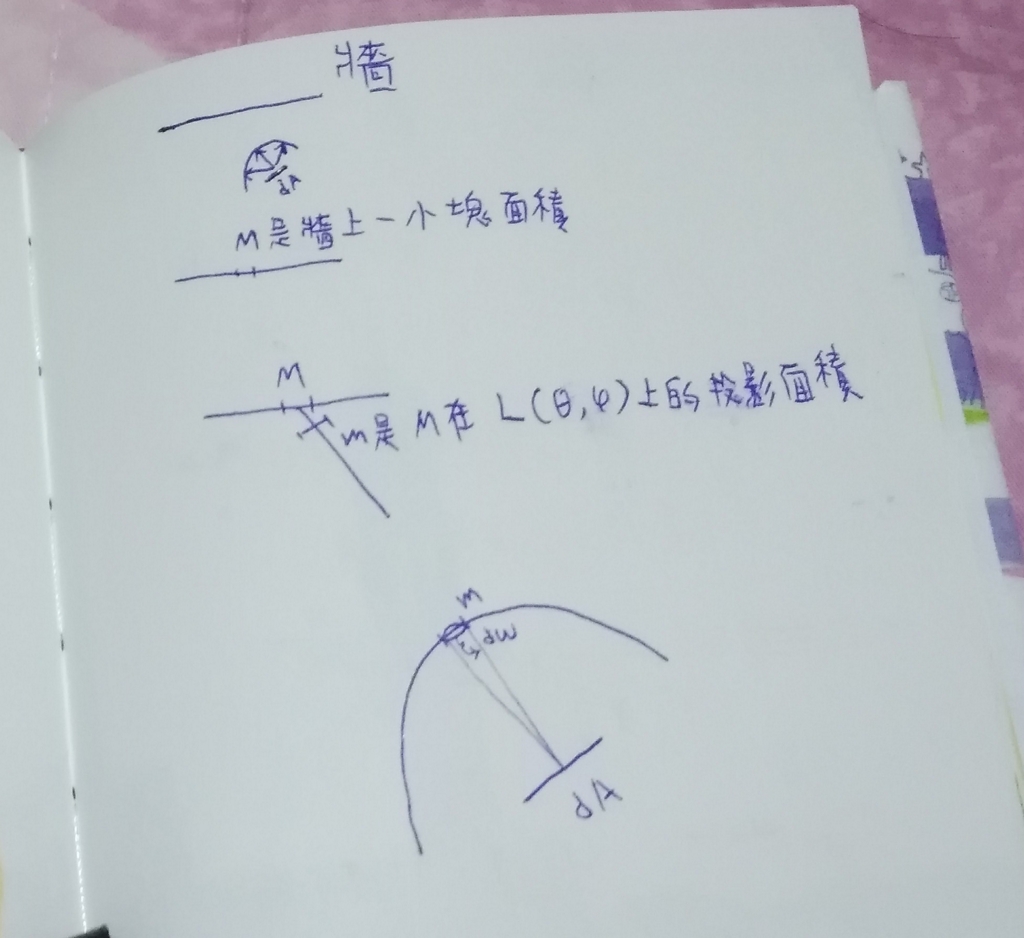 牆
dA
M是牆上一小塊面積
M
m是 M在 L(θ,φ)上的投影面積
m
dω
dA